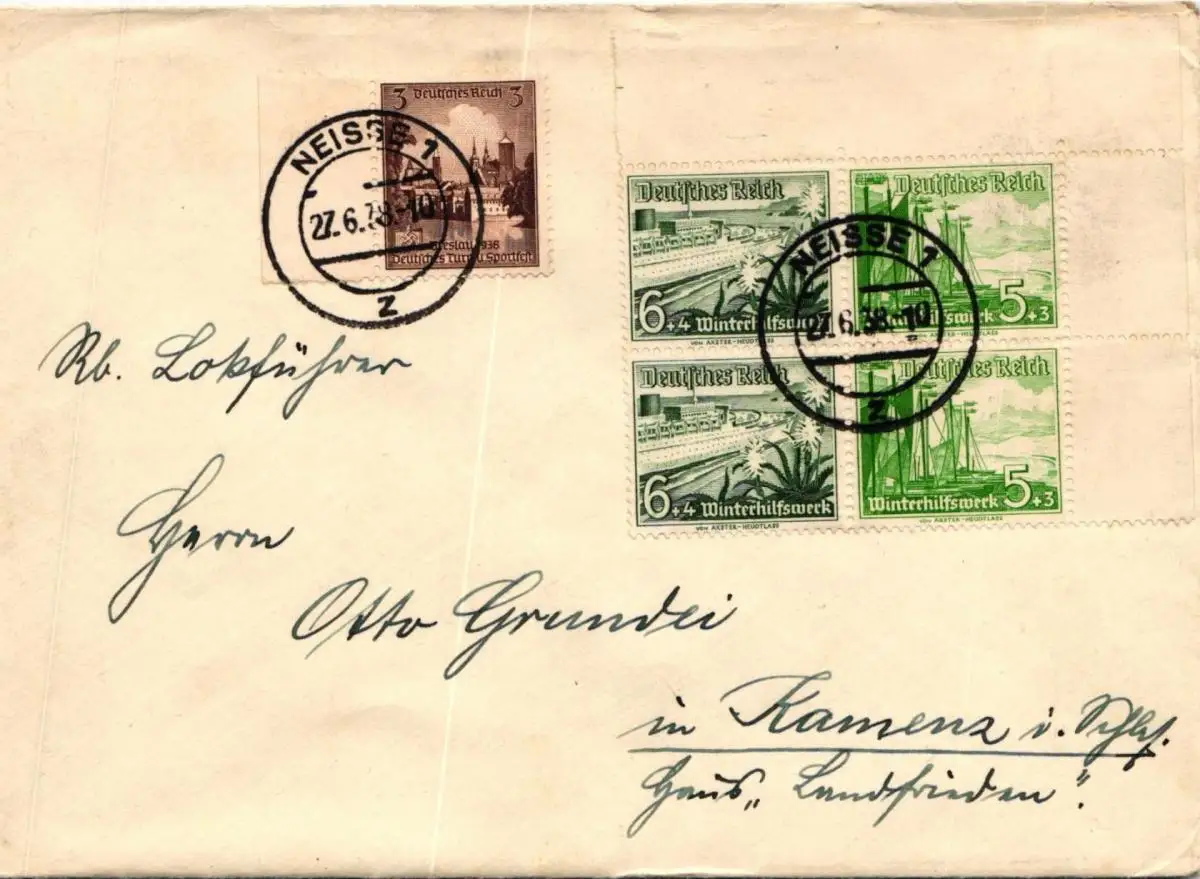 3 Deutsches Reich 3
Breslau 1938
Deutsches Turn- u Sportfest
NEISSE 1
27.6.38.-10
z
Deutsches Reich
6+4 Winterhilfswerk
VON AXSTER-HEUDTLASS
Deutsches Reich
5+3
Winterhilfswerk
VON AXSTER-HEUDTLASS
NEISSE 1
27.6.38.-10
z
Deutsches Reich
6+4 Winterhilfswerk
VON AXSTER-HEUDTLASS
Deutsches Reich
Winterhilfswerk 5+3
VON AXSTER-HEUDTLASS
Rb. Lokführer
Herrn
Otto Grundei
in Kamenz i. Schles.
Haus „Landfrieden".